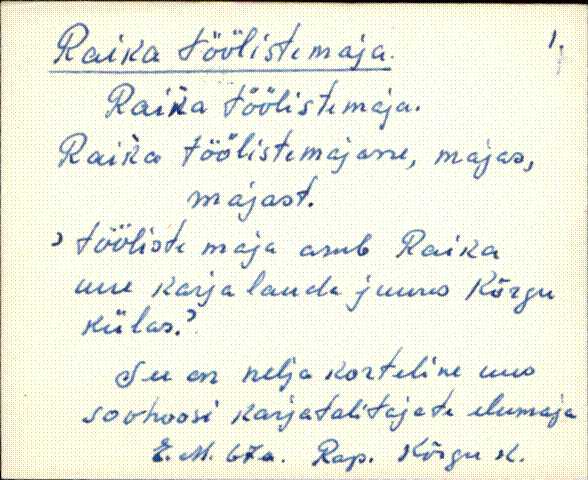 Raika töölistemaja. 1.
Raika töölistemaja.
Raika töölistemajasse, majas,
majast.
› tööliste maja asub Raika
uue karja lauda juures Kõrgu
külas.›
See on nelja korteline uus
sovhoosi karjatalitajate elumaja
E. M. 67a. Rap. Kõrgu k.